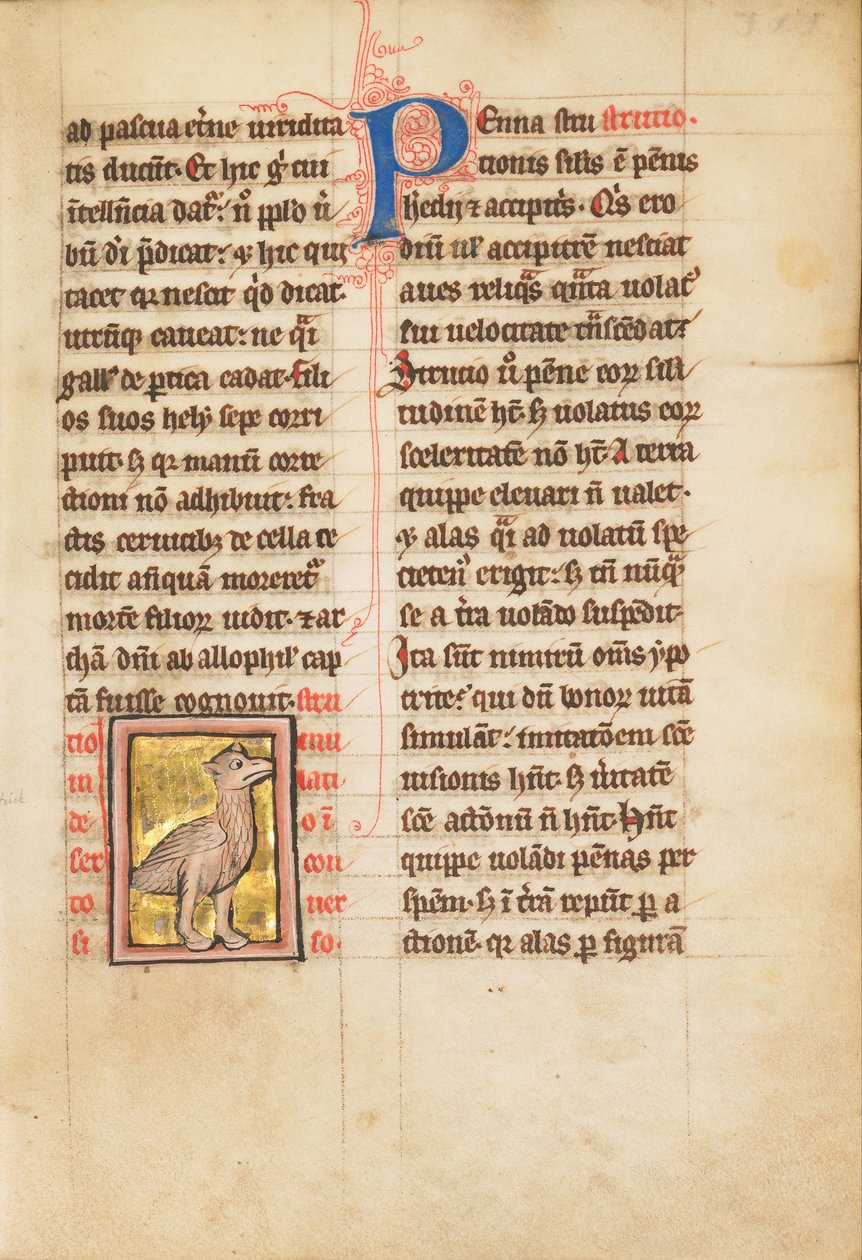 ad pascua et̉ne uiridita
tis ducũt. Et hic g̊ cui
ĩtellñcia dat᷑: nͦ ꝓpło ũ
bũ dĩ p̃dicat: ⁊ hic qui
tacet qꝛ nescit qͥd dicat.
utrũq; caueat: ne qͣi
gall᷒ de ꝑtica cadat. fili
os suos hely sepe corri
puit. sꝫ qꝛ manũ corre
ctioni nõ adhibuit: fra
ctis ceruicibꝫ de cella ce
cidit añquã moreret᷑
mortẽ filioꝝ uidit. ⁊ ar
chã dñi ab allophil᷒ cap
tã fuisse cognouit. stru
tio mu
in lati
de o ĩ
ser con
to uer
si so.
PEnna stru strutio.
ctionis silis ẽ pẽnis
herdij ⁊ accipit̉s. Qͥs ero
diũ uł accipitrẽ nesciat
aues reliqͣs qͣnta uolat᷑
sui uelocitate tͣnscẽdat?
Strucio ũ pẽne eoꝝ sili
tudinẽ hꝫ. sꝫ uolatus eoꝝ
sceleritatẽ nõ hꝫ. A terra
quippe eleuari ñ ualet.
⁊ alas qͣi ad uolatũ spe
cieten᷒ erigit: sꝫ tñ nũqͣ
se a t̉ra uolãdo suspẽdit.
Ita sũt nimirũ om̃s ypo
crite: qui dũ bonoꝝ uitã
simulãt: imitatõem sc̃e
uisionis hñt. sꝫ ũitatẽ
sc̃e actõnũ ñ hñt. Hñt
quippe uolãdi pẽnas per
spẽm. sꝫ ĩ t̉rã reptũt ꝑ a
ctionẽ. qꝛ alas ꝑ figurã